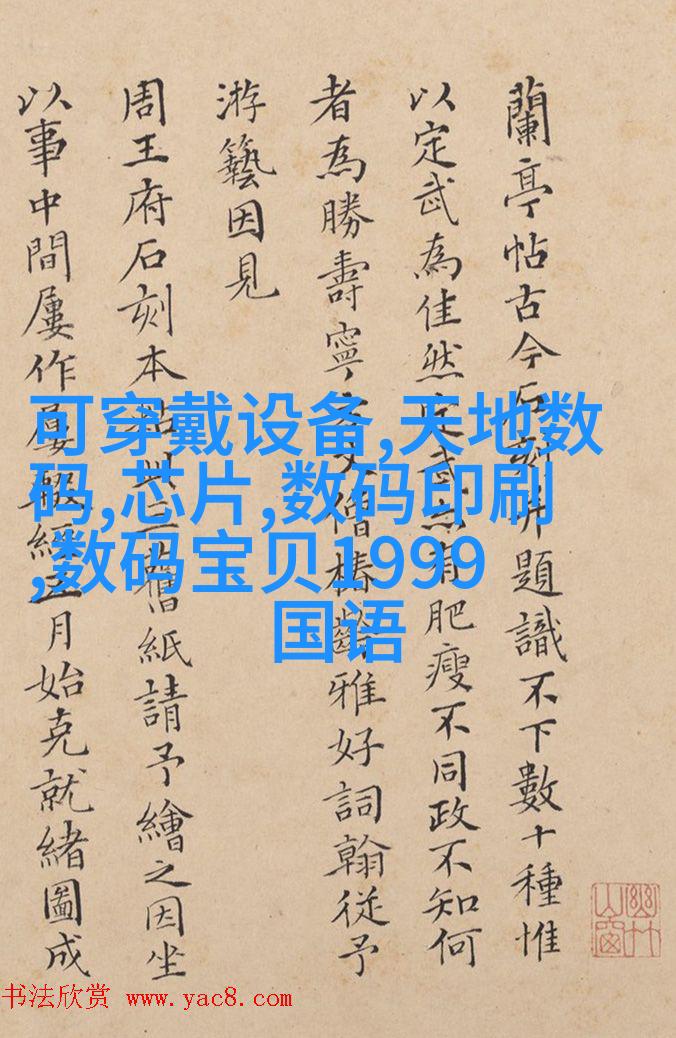 蘭亭帖古今石刻并題識不下數十種惟
以定武為佳然定武亦有肥瘦不同政不知何
者為勝壽寧僧椿齡雅好詞翰從予
游藝因見
周王府石刻本舊紙請予繪之因坐
以事中間屢作屢輟經五月始克就緒圖成
可穿戴设备,天地数
码,芯片,数码印刷
,数码宝贝1999
国语
书法欣赏 www.yac8.com